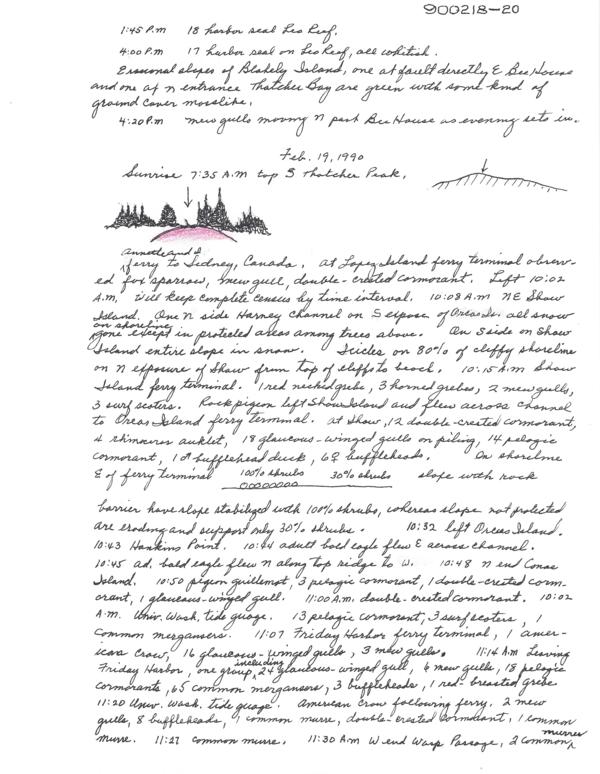 900218-20
1:45 P.m 18 harbor seal Leo Reef.
4:00 P.m 17 harbor seal on Leo Reef, all whitish.
Erosional slopes of Blakely Island, one at fault directly E Bee House
and one at n entrance Thatcher Bay are green with some kind of
ground cover mosslike.
4:20 P.m mew gulls moving n past Bee House as evening sets in.
Feb. 19, 1990
Sunrise 7:35 A.m top S Thatcher Peak.
Annette and I
ferry to Sidney, Canada. at Lopez Island ferry terminal observ-
ed fox sparrow, mew gull, double-crested cormorant. Left 10:02
A.m. Will keep complete census by time interval. 10:08 A.m NE Shaw
Island. On n side Harney channel on S exposure of Orcas Is. all snow
on shoreline
gone except in protected areas among trees above. On S side on Shaw
Island entire slope in snow. Icicles on 80% of cliffy shoreline
on n exposure of Shaw from top of cliffs to beach. 10:15 A.m Shaw
Island ferry terminal. 1 red necked grebe, 3 horned grebes, 2 mew gulls,
3 surf scoters. Rock pigeon left Shaw Island and flew across channel
to Orcas Island ferry terminal. at Shaw, 12 double-crested cormorant,
4 rhinoceros auklet, 18 glaucous-winged gulls on piling, 14 pelagic
cormorant, 1♂ bufflehead duck, 6♀ buffleheads. On shoreline
E of ferry terminal 100% shrubs 30% shrubs slope with rock
barrier have slope stabilized with 100% shrubs, whereas slope not protected
are eroding and support only 30% shrubs. 10:32 left Orcas Island.
10:43 Hankins Point. 10:44 adult bald eagle flew E across channel.
10:45 ad. bald eagle flew n along top ridge to W. 10:48 n end Canoe
Island. 10:50 pigeon guillemot, 3 pelagic cormorant, 1 double-crested corm-
orant, 1 glaucous-winged gull. 11:00 A.m. double-crested cormorant. 10:02
A.m. Univ. Wash. tide guage. 13 pelagic cormorant, 3 surf scoters, 1
common mergansers. 11:07 Friday Harbor ferry terminal, 1 amer-
ican crow, 16 glaucous-winged gulls, 3 mew gulls. 11:14 A.m Leaving
Friday Harbor, one group, including 24 glaucous-winged gull, 6 mew gulls, 18 pelagic
cormorants, 65 common mergansers, 3 buffleheads, 1 red-breasted grebe
11:20 Univ. Wash. tide guage. American crow following ferry. 2 mew
gulls, 8 buffleheads, 1 common murre, double-crested cormorant, 1 common
murre. 11:27 common murre. 11:30 A.m W end Wasp Passage, 2 common murres